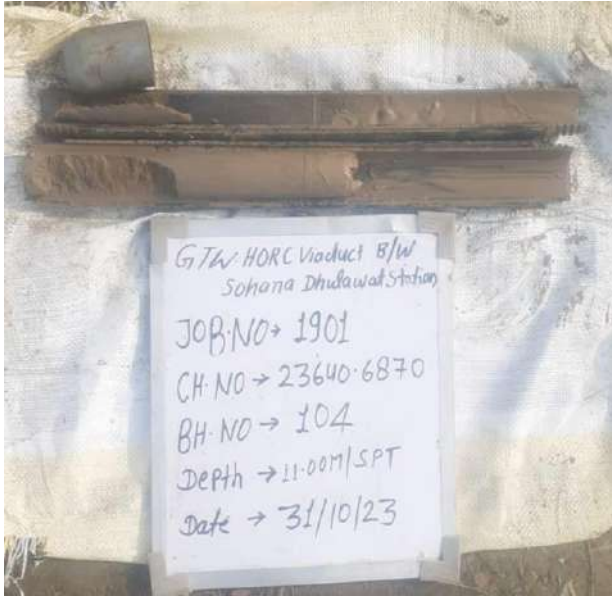 GTW. HORC Viaduct B/W
Sohana Dhulawat Station
JOB.NO → 1901
CH.NO → 23640.6870
BH.NO → 104
Depth → 11.00M/SPT
Date → 31/10/23